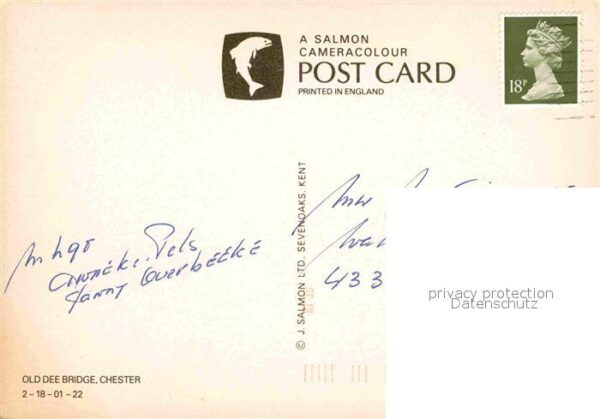 A SALMON
CAMERACOLOUR
POST CARD
PRINTED IN ENGLAND
18P
© J. SALMON LTD. SEVENOAKS, KENT
Pels
Fanny Overbeeke
433
privacy protection
Datenschutz
OLD DEE BRIDGE, CHESTER
2-18-01-22